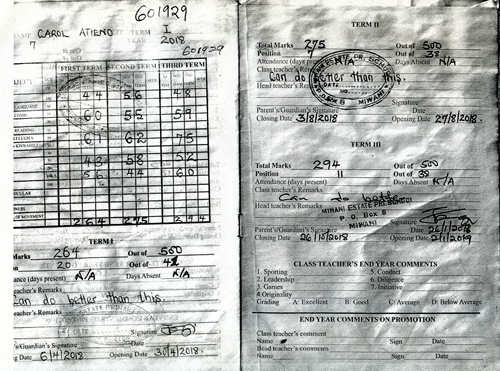 601929
NAME CAROL ATIENO TERM I
7 YEAR 2018
601929
FIRST TERM SECOND TERM THIRD TERM
44 56 48
LANGUAGE
COMP 60 55 59
READING
61 62 75
KISWAHILI
43 58 52
56 44 60
264 275 294
TERM I
Marks 264 Out of 500
20 Out of 42
Attendance (days present) N/A Days Absent N/A
Teacher's Remarks
Can do better than this.
Teacher's Remarks
Signature
Parent's/Guardian's Signature Date
Closing Date 6/4/2018 Opening Date 30/4/2018.
TERM II
Total Marks 275 Out of 500
Position 7 Out of 38
Attendance (days present) N/A Days Absent N/A
Class teacher's Remarks
Can do better than this.
Head teacher's Remarks
BOX 8 MIWANI
Signature
Parent's/Guardian's Signature Date
Closing Date 3/8/2018 Opening Date 27/8/2018.
TERM III
Total Marks 294 Out of 500
Position 11 Out of 38
Attendance (days present) Days Absent N/A
Class teacher's Remarks
Can do better
Head teacher's Remarks
MIWANI ESTATE
P. O. Box 8
MIWANI
Signature
Parent's/Guardian's Signature Date
Closing Date 26/10/2018 Opening Date 2/1/2019
CLASS TEACHER'S END YEAR COMMENTS
1. Sporting 5. Conduct
2. Leadership 6. Diligence
3. Games 7. Initiative
4. Originality
Grading A: Excellent B: Good C: Average D: Below Average
END YEAR COMMENTS ON PROMOTION
Class teacher's comment
Name Sign Date
Head teacher's comments
Name Sign Date